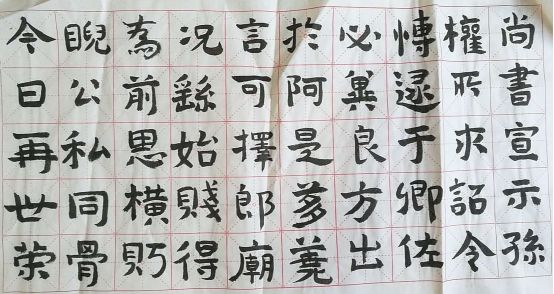 尚書宣示孫
權所求詔令
愽逮于卿佐
必冀良方出
於阿是芻蕘
言可擇郎廟
况繇始賤得
為前恩橫眄
睨公私同骨
今日再世荣